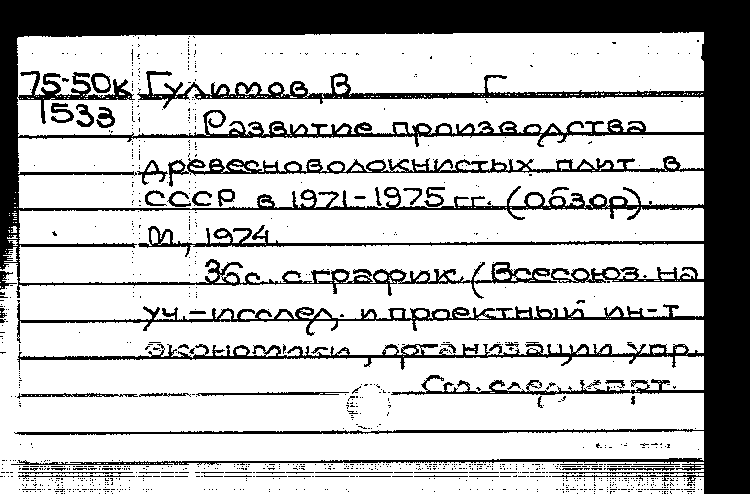 75-50к Гулимов, В Г
1533
Развитие производства
древесноволокнистых плит в
СССР в 1971-1975 гг. (Обзор).
М., 1974.
36с. с график. (Всесоюз. на
уч.-исслед. и проектный ин-т
экономики, организации упр.
См. след. карт.